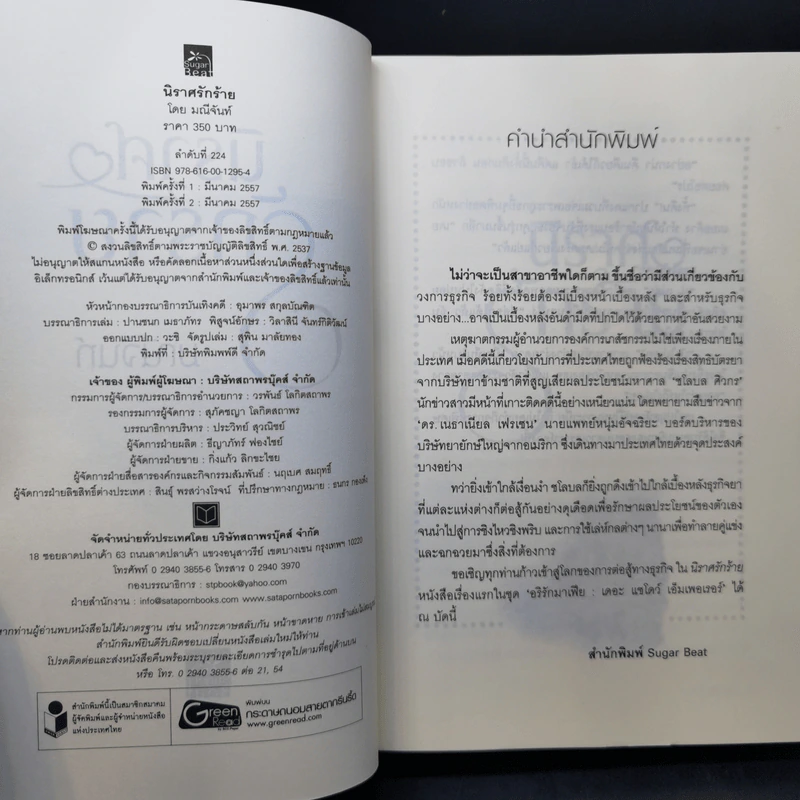 Sugar
Beat
นิราศรักร้าย
โดย มณีจันท์
ราคา 350 บาท
ลำดับที่ 224
ISBN 978-616-00-1295-4
พิมพ์ครั้งที่ 1 : มีนาคม 2557
พิมพ์ครั้งที่ 2 : มีนาคม 2557
พิมพ์โฆษณาครั้งนี้ได้รับอนุญาตจากเจ้าของลิขสิทธิ์ตามกฎหมายแล้ว
© สงวนลิขสิทธิ์ตามพระราชบัญญัติลิขสิทธิ์ พ.ศ. 2537
ไม่อนุญาตให้สแกนหนังสือ หรือคัดลอกเนื้อหาส่วนหนึ่งส่วนใดเพื่อสร้างฐานข้อมูล
อิเล็กทรอนิกส์ เว้นแต่ได้รับอนุญาตจากสำนักพิมพ์และเจ้าของลิขสิทธิ์แล้วเท่านั้น
หัวหน้ากองบรรณาธิการบันเทิงคดี : อุมาพร สกุลบัณฑิต
บรรณาธิการเล่ม : ปานชนก เมธาภัทร พิสูจน์อักษร : วิลาสินี จันทร์กิติวัฒน์
ออกแบบปก : วะชิ จัดรูปเล่ม : สุพิน มาลัยทอง
พิมพ์ที่ : บริษัทพิมพ์ดี จำกัด
เจ้าของ ผู้พิมพ์ผู้โฆษณา : บริษัทสถาพรบุ๊คส์ จำกัด
กรรมการผู้จัดการ/บรรณาธิการอำนวยการ : วรพันธ์ โลกิตสถาพร
รองกรรมการผู้จัดการ : สุภัคชญา โลกิตสถาพร
บรรณาธิการบริหาร : ประวิทย์ สุวณิชย์
ผู้จัดการฝ่ายผลิต : ชีญาภัทร์ ฟองไชย์
ผู้จัดการฝ่ายขาย : กิ่งแก้ว ลิกขะไชย
ผู้จัดการฝ่ายสื่อสารองค์กรและกิจกรรมสัมพันธ์ : นฤเบศ สมฤทธิ์
ผู้จัดการฝ่ายลิขสิทธิ์ต่างประเทศ : สินธุ์ พรสว่างโรจน์ ที่ปรึกษาทางกฎหมาย : ธนกร
จัดจำหน่ายทั่วประเทศโดย บริษัทสถาพรบุ๊คส์ จำกัด
18 ซอยลาดปลาเค้า 63 ถนนลาดปลาเค้า แขวงอนุสาวรีย์ เขตบางเขน กรุงเทพฯ 10220
โทรศัพท์ 0 2940 3855-6 โทรสาร 0 2940 3970
กองบรรณาธิการ : stpbook@yahoo.com
ฝ่ายสำนักงาน : info@satapornbooks.com, www.satapornbooks.com
หากท่านผู้อ่านพบหนังสือไม่ได้มาตรฐาน เช่น หน้ากระดาษสลับกัน หน้าขาดหาย การเข้าเล่ม
สำนักพิมพ์ยินดีรับผิดชอบเปลี่ยนหนังสือเล่มใหม่ให้ท่าน
โปรดติดต่อและส่งหนังสือคืนพร้อมระบุรายละเอียดการชำรุดไปตามที่อยู่ด้านบน
หรือ โทร. 0 2940 3855-6 ต่อ 21, 54
สำนักพิมพ์นี้เป็นสมาชิกสมาคม
ผู้จัดพิมพ์และผู้จำหน่ายหนังสือ
แห่งประเทศไทย
Green
Read
พิมพ์บน
กระดาษถนอมสายตากรีนรี้ด
www.greenread.com
คำนำสำนักพิมพ์
ไม่ว่าจะเป็นสาขาอาชีพใดก็ตาม ขึ้นชื่อว่ามีส่วนเกี่ยวข้องกับ
วงการธุรกิจ ร้อยทั้งร้อยต้องมีเบื้องหน้าเบื้องหลัง และสำหรับธุรกิจ
บางอย่าง...อาจเป็นเบื้องหลังอันดำมืดที่ปกปิดไว้ด้วยฉากหน้าอันสวยงาม
เหตุฆาตกรรมผู้อำนวยการองค์การเภสัชกรรมไม่ใช่เพียงเรื่องภายใน
ประเทศ เมื่อคดีนี้เกี่ยวโยงกับการที่ประเทศไทยถูกฟ้องร้องเรื่องสิทธิบัตรยา
จากบริษัทยาข้ามชาติที่สูญเสียผลประโยชน์มหาศาล ‘ชโลบล ศิวกร’
นักข่าวสาวมีหน้าที่เกาะติดคดีนี้อย่างเหนียวแน่น โดยพยายามสืบข่าวจาก
‘ดร.เนธาเนียล เฟรเซน’ นายแพทย์หนุ่มอัจฉริยะ บอร์ดบริหารของ
บริษัทยายักษ์ใหญ่จากอเมริกา ซึ่งเดินทางมาประเทศไทยด้วยจุดประสงค์
บางอย่าง
ทว่ายิ่งเข้าใกล้เงื่อนงำ ชโลบลก็ยิ่งถูกดึงเข้าไปใกล้เบื้องหลังธุรกิจยา
ที่แต่ละแห่งต่างก็ต่อสู้กันอย่างดุเดือดเพื่อรักษาผลประโยชน์ของตัวเอง
จนนำไปสู่การชิงไหวชิงพริบ และการใช้เล่ห์กลต่างๆ นานาเพื่อทำลายคู่แข่ง
และฉกฉวยมาซึ่งสิ่งที่ต้องการ
ขอเชิญทุกท่านก้าวเข้าสู่โลกของการต่อสู้ทางธุรกิจ ใน นิราศรักร้าย
หนังสือเรื่องแรกในชุด ‘อริรักมาเฟีย : เดอะ แชโดว์ เอ็มเพอเรอร์’ ได้
ณ บัดนี้
สำนักพิมพ์ Sugar Beat